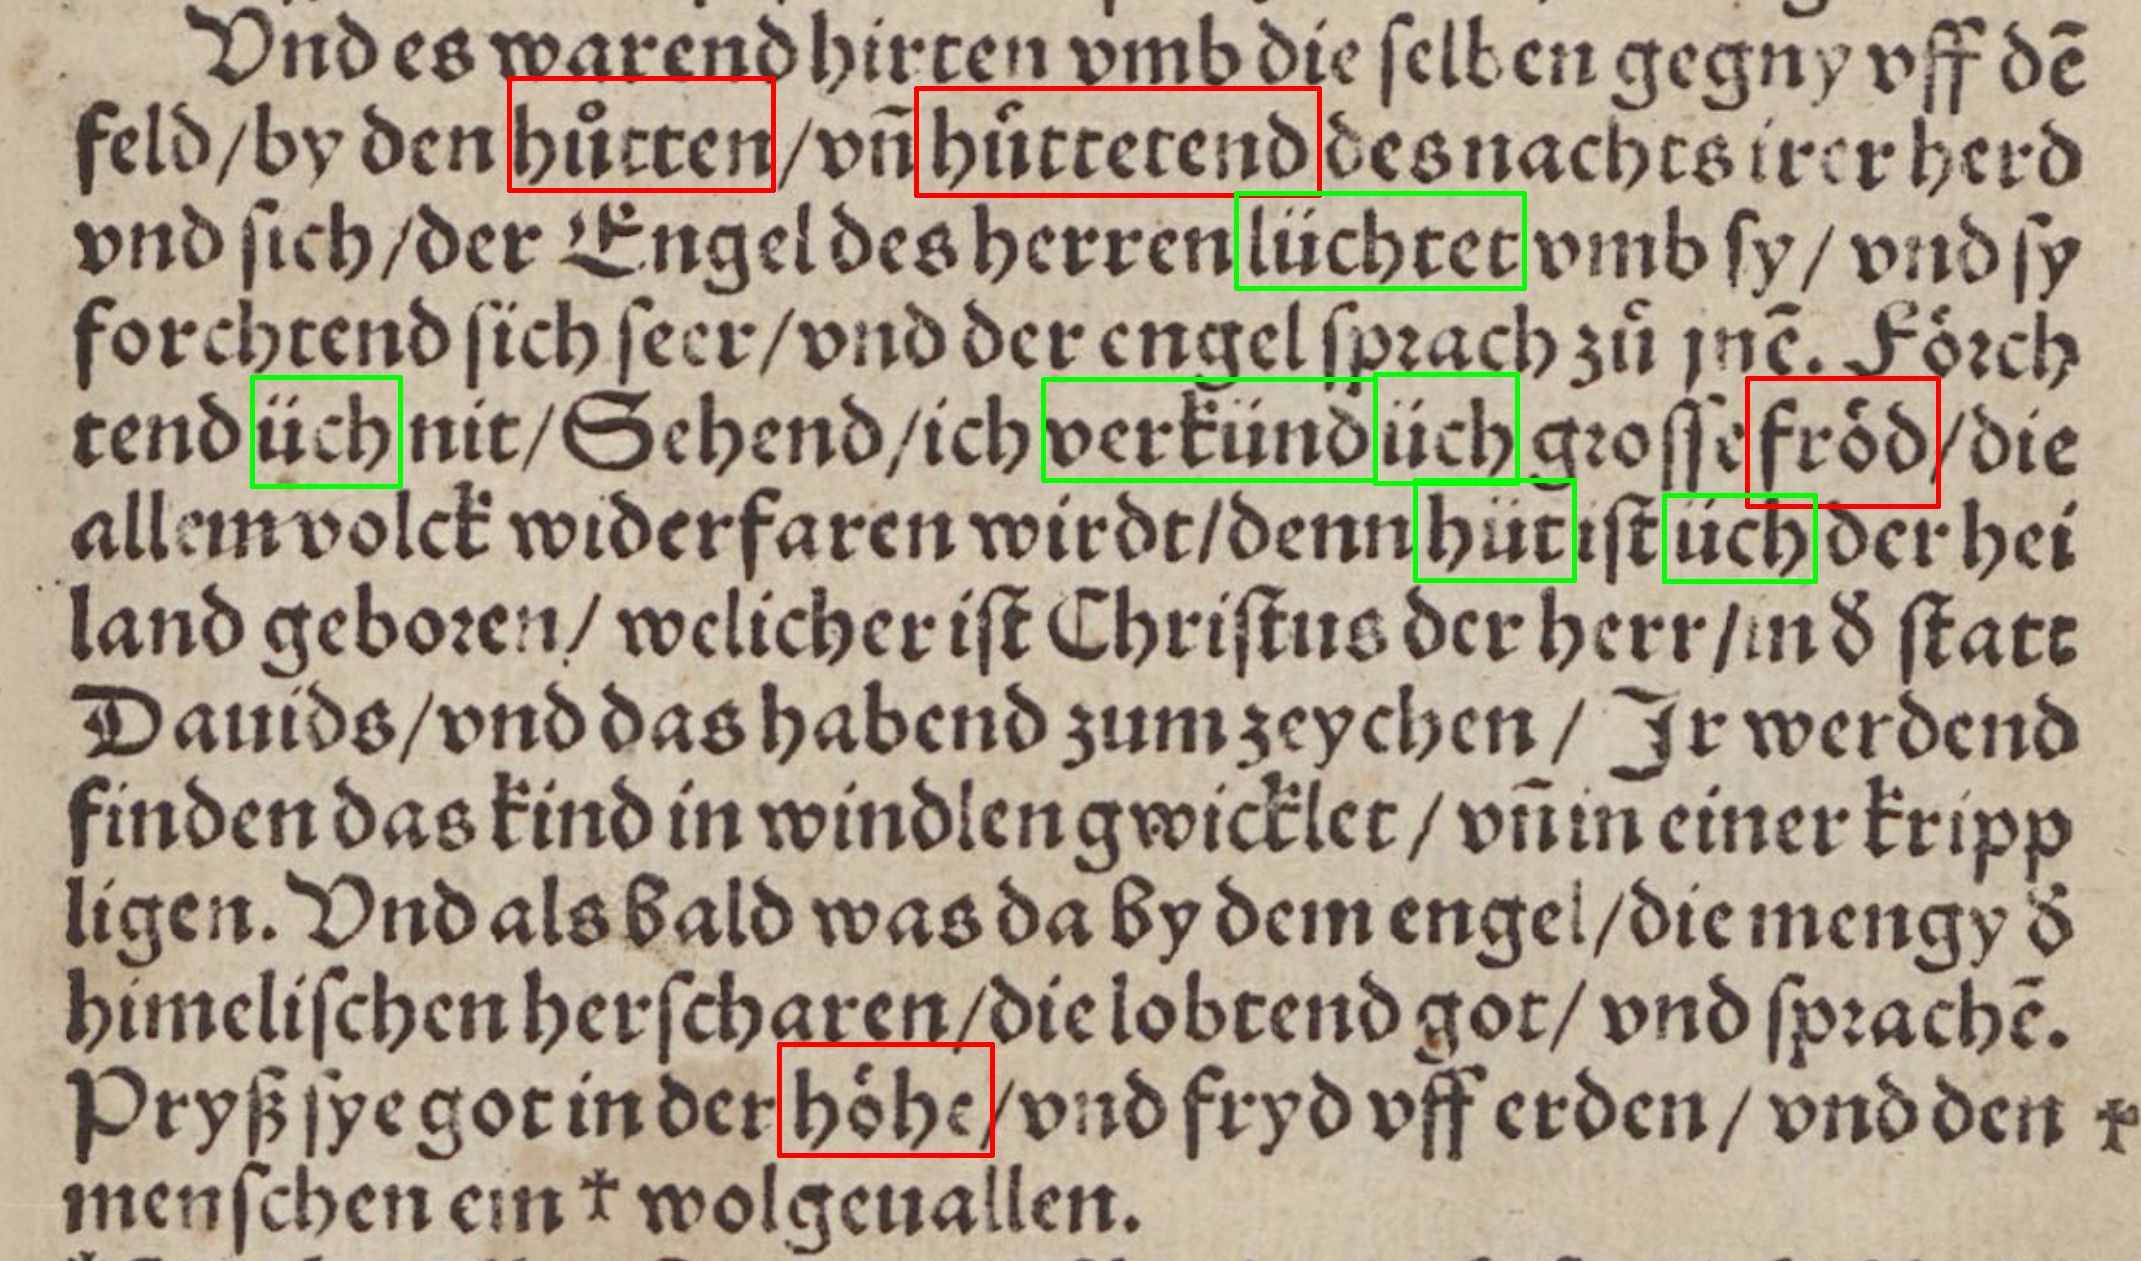 Vnd es warend hirten vmb die ſelben gegny vff dē
feld/by den huͤtten/vn̄ huͤttetend des nachts irer herd
vnd ſich/der Engel des herren lüchtet vmb ſy/ vnd ſy
forchtend ſich ſeer/vnd der engel ſpꝛach zuͦ jnē. Foͤꝛch
tend üch nit/Sehend/ich verkünd üch gꝛoſſe froͤd/die
allem volck widerfaren wirdt/denn hüt iſt üch der hei
land geboꝛen/ welicher iſt Chriſtus der herr/in d̕ ſtatt
Dauids/vnd das habend zum zeychen/ Jr werdend
finden das kind in windlen gwicklet/ vn̄ in einer kripp
ligen. Vnd als bald was da by dem engel/die mengy d̕
himeliſchen herſcharen/die lobtend got/ vnd ſpꝛachē.
Pryß ſye got in der hoͤhe/vnd fryd vff erden/ vnd den ✝
menſchen ein ✝ wolgeuallen.